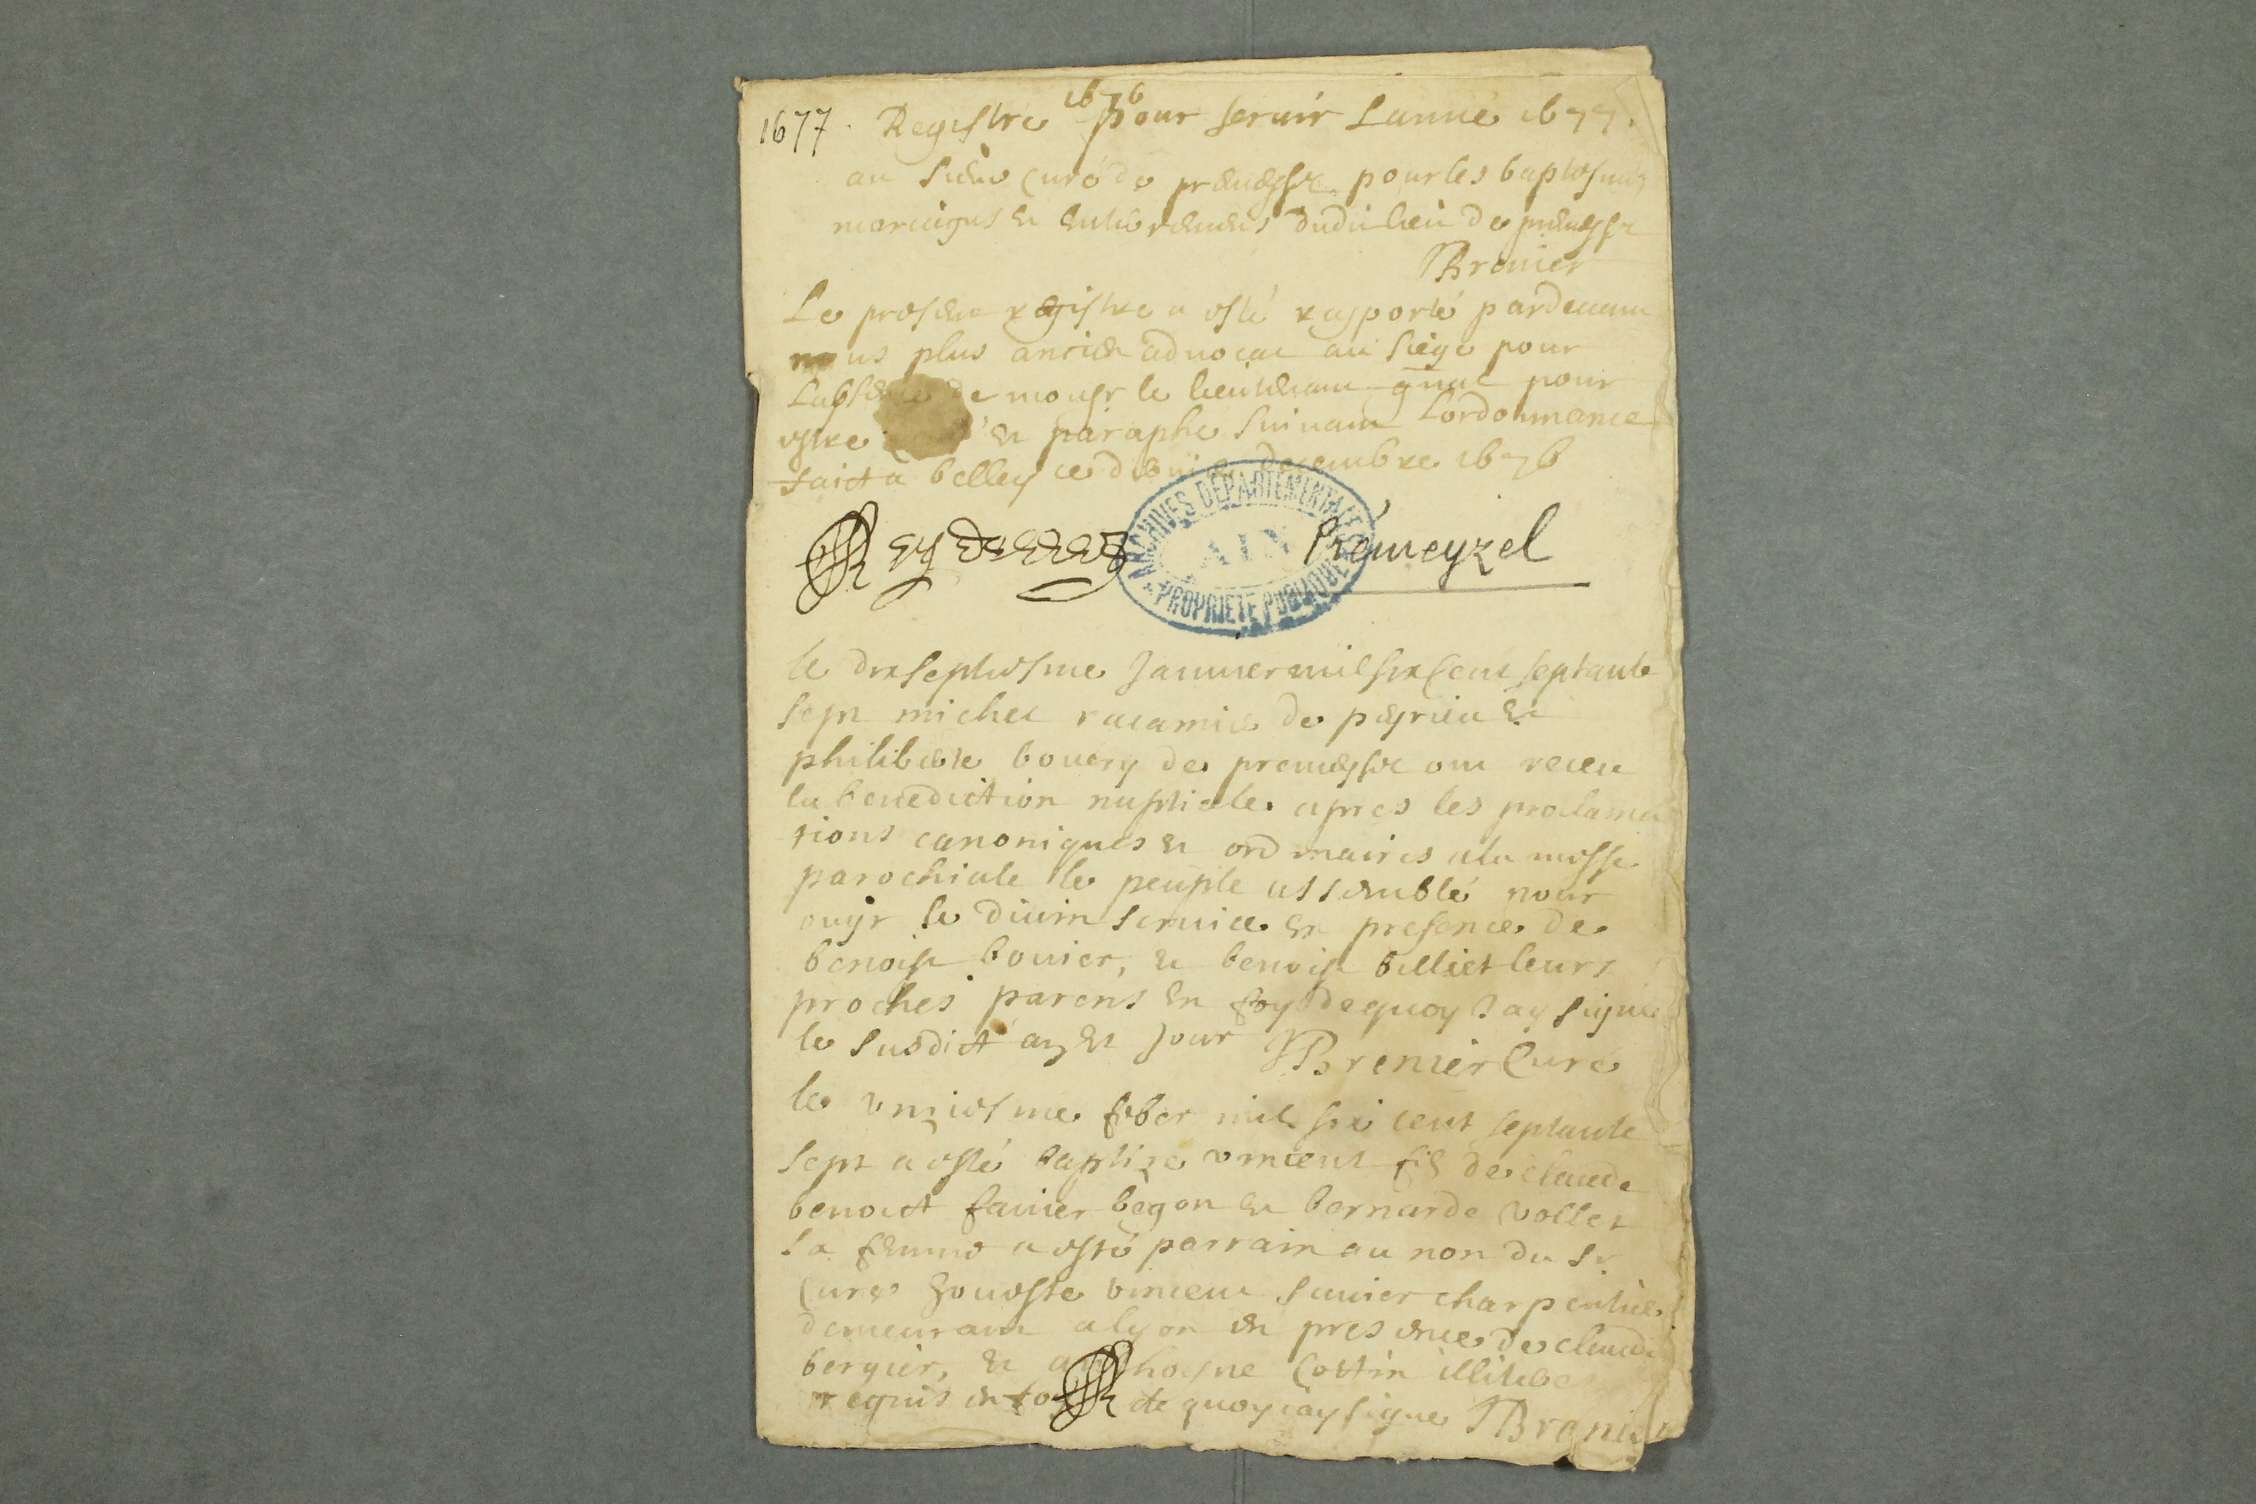 1676
1677. Registre pour seruir Lannée 1677.
au sieur curé de premeysse pour les baptesmes
mariages et enterremens dudit lieu de premeysse
Brenier
Le present registre a esté raporté pardeuant
nous plus ancien aduocat au siege pour
Labsence de monsr le lieutenant gnal pour
estre et paraphe suiuant Lordonnance
faict a belley ce decembre 1676
Prémeyzel
ARCHIVES DÉPARTEMENTALES
AIN
PROPRIÉTÉ PUBLIQUE
le dixseptiesme Januier mil six cent septante
sept michel racamie de peyrieu et
philiberte bouery de premeysse ont receu
la benediction nuptiale apres les proclama
tions canoniques et ordinaires a la messe
parochiale le peuple assemblé pour
ouyr le diuin seruice en presence de
benoist bouier, et benoist billiet leurs
proches parens en foy dequoy Jay signé
le susdict an et jour Brenier Curé
le unziesme feber mil six cent septante
sept a esté baptizé vincent fils de claude
benoict fauier begon et bernarde vollet
sa femme a esté parrain au non du sr
Curé vincent fauier charpentier
demeurant a lyon en presence de claude
bergier, et anthoyne Cottin illiteré
requis en foy de quoy iay signé Brenier